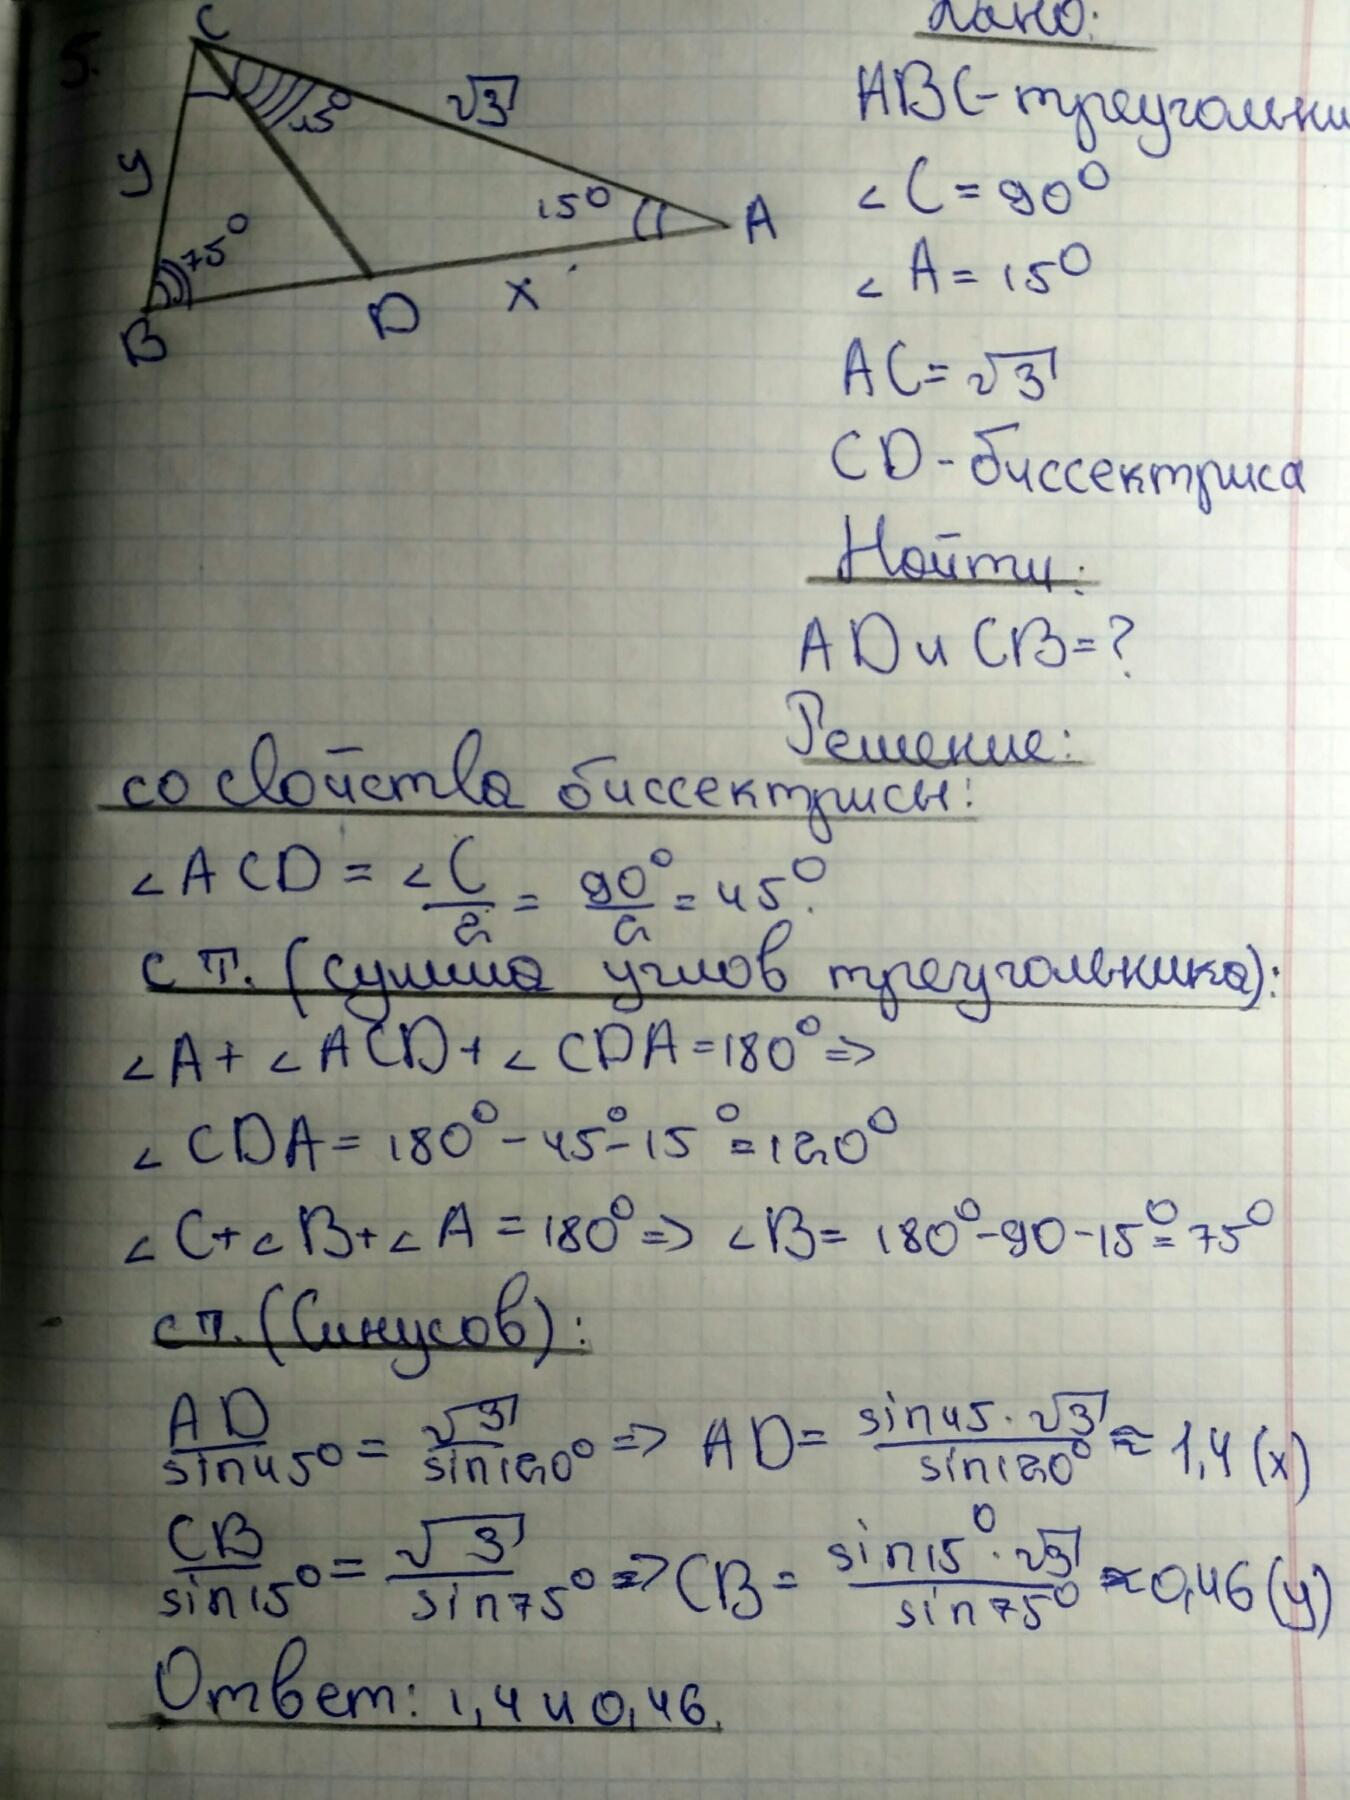 5.
C
√3
45°
y
15°
A
75°
B
D
x
Дано:
ABC-треугольни
∠C=90°
∠A=15°
AC=√3
CD-биссектриса
Найти:
AD и CB=?
Решение:
со свойства биссектрисы:
∠ACD = ∠C/2 = 90°/2 = 45°.
с т. (сумма углов треугольника):
∠A+∠ACD+∠CDA=180° =>
∠CDA= 180°-45°-15°=120°
∠C+∠B+∠A=180° => ∠B= 180°-90-15°=75°
с т. (Синусов):
AD/sin45° = √3/sin120° => AD= sin45·√3/sin120° ≈ 1,4 (x)
CB/sin15° = √3/sin75° => CB= sin15°·√3/sin75° ≈ 0,46 (y)
Ответ: 1,4 и 0,46.